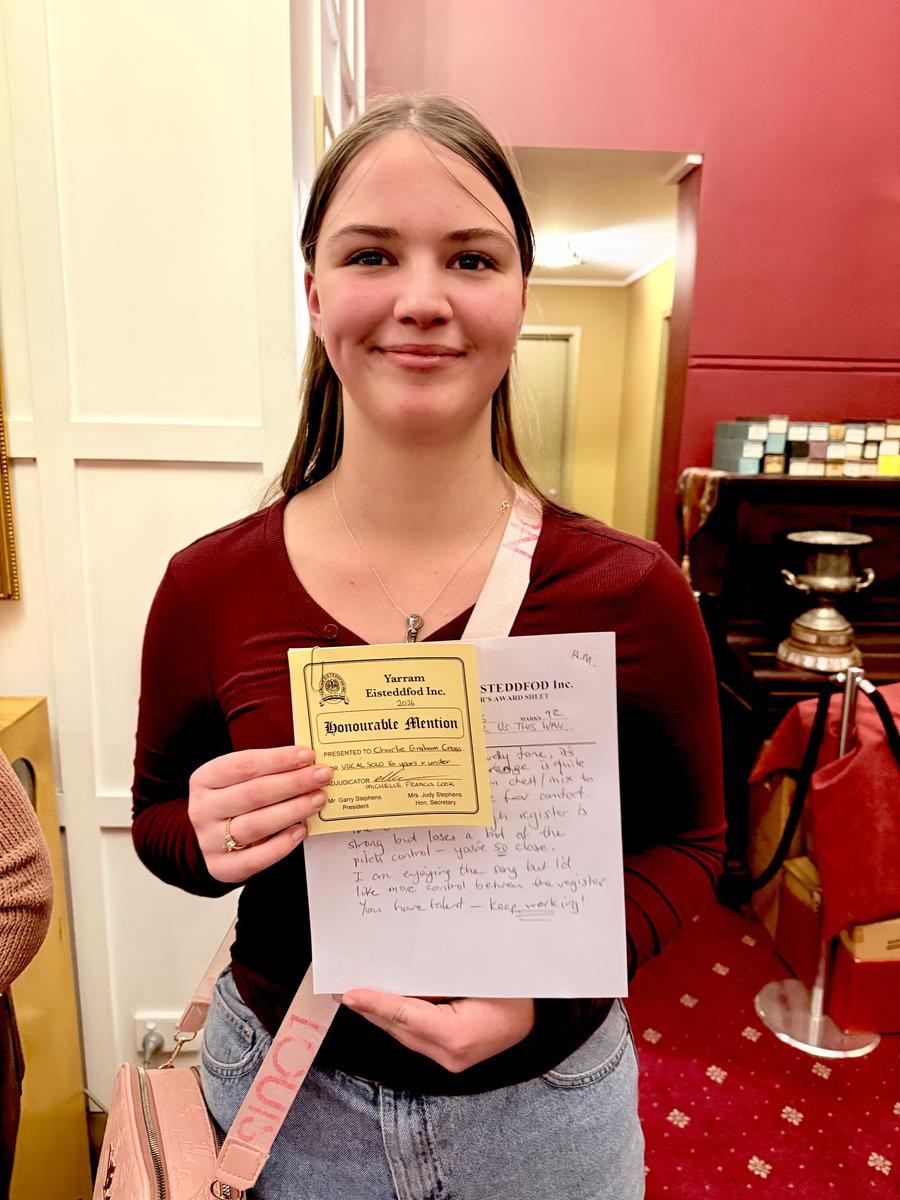 Yarram
Eisteddfod Inc.
2026
Honourable Mention
PRESENTED TO Charlie Graham Cross
VOCAL SOLO 16 years & under
ADJUDICATOR
MICHELLE FRANCIS COOK
Mr Garry Stephens
President
Mrs. Judy Stephens
Hon. Secretary
H.M.
STEDDFOD Inc.
R'S AWARD SHEET
MARKS 92
US THIS WAY
tone, it's
is quite
chest/mix to
register is
strong but loses a bit of the
pitch control - you're so close.
I am enjoying the song but I'd
like more control between the register.
You have talent - keep working!
LOUIS